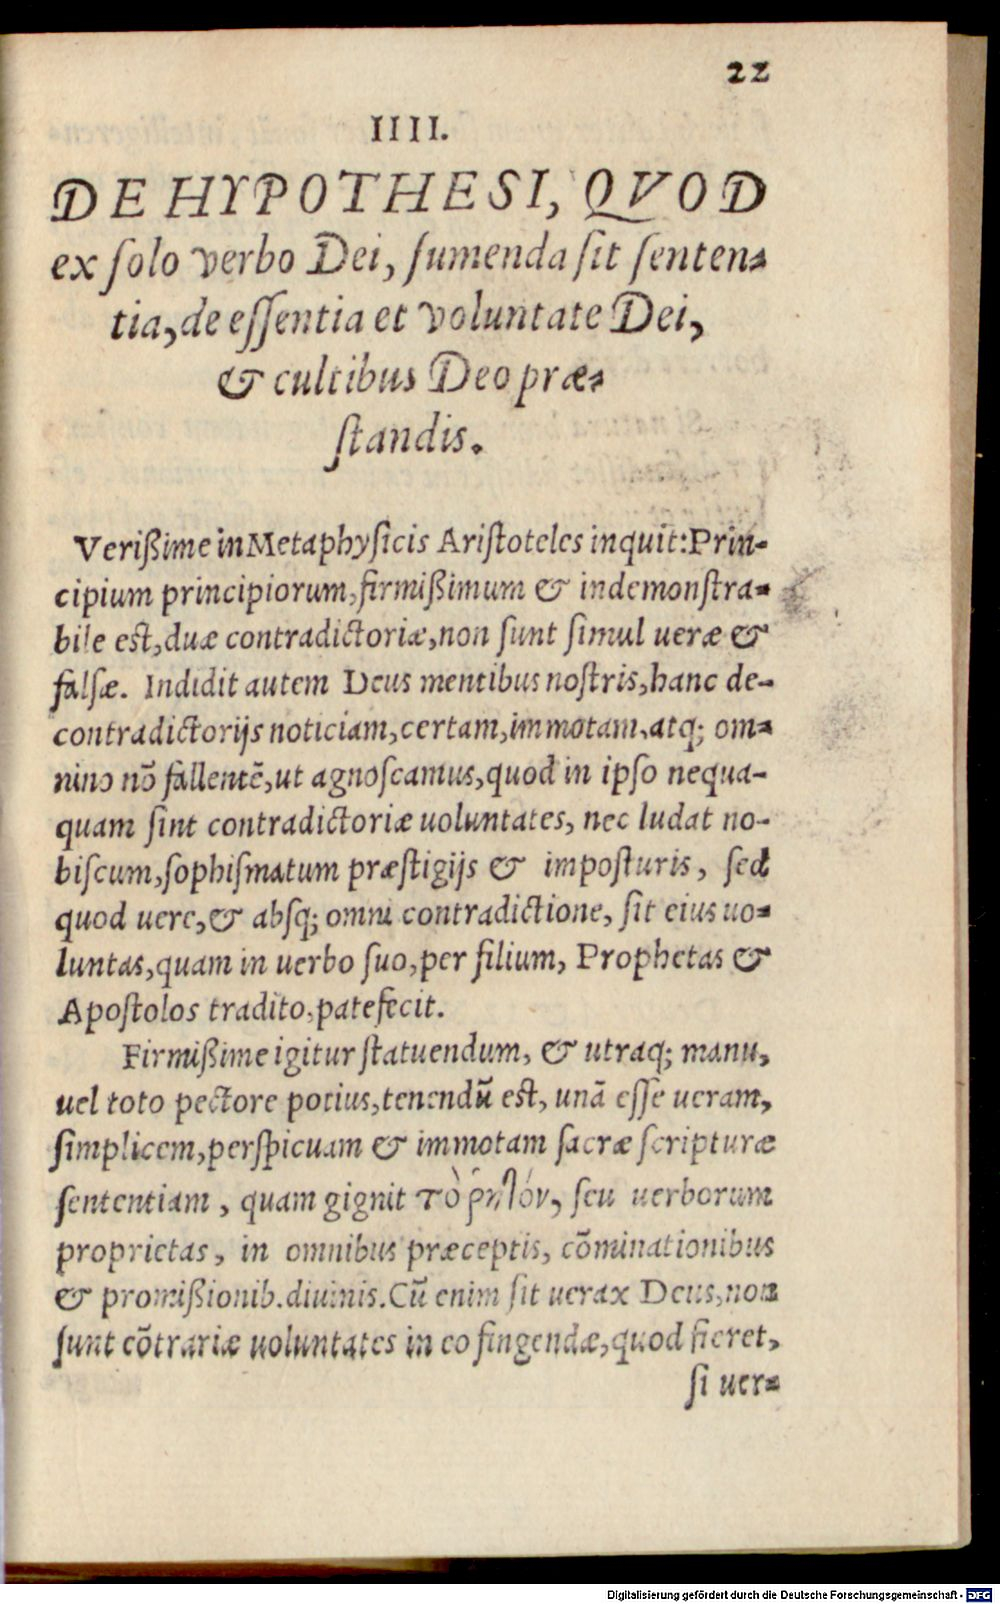 22
IIII.
DE HYPOTHESI, QVOD
ex ſolo verbo Dei, ſumenda ſit ſenten-
tia, de eſſentia et voluntate Dei,
& cultibus Deo præ-
ſtandis.
Verißime in Metaphyſicis Ariſtoteles inquit: Prin-
cipium principiorum, firmißimum & indemonſtra-
bile est, duæ contradictoriæ, non ſunt ſimul ueræ &
falſæ. Indidit autem Deus mentibus noſtris, hanc de-
contradictorijs noticiam, certam, immotam, atq; om-
nino nō fallentē, ut agnoſcamus, quod in ipſo nequa-
quam ſint contradictoriæ uoluntates, nec ludat no-
biſcum, ſophiſmatum præſtigijs & impoſturis, ſed
quod uere, & abſq; omni contradictione, ſit eius uo-
luntas, quam in uerbo ſuo, per filium, Prophetas &
Apoſtolos tradito, patefecit.
Firmißime igitur ſtatuendum, & utraq; manu,
uel toto pectore potius, tenendū eſt, unā eſſe ueram,
ſimplicem, perſpicuam & immotam ſacræ ſcripturæ
ſententiam, quam gignit τὸ ῥητόν, ſeu uerborum
proprietas, in omnibus præceptis, cōminationibus
& promißionib. diuinis. Cū enim ſit uerax Deus, non
ſunt cōtrariæ uoluntates in eo fingendæ, quod fieret,
ſi uer-
Digitalisierung gefördert durch die Deutsche Forschungsgemeinschaft - DFG